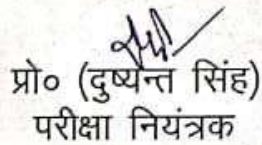 प्रो० (दुष्यन्त सिंह)
परीक्षा नियंत्रक